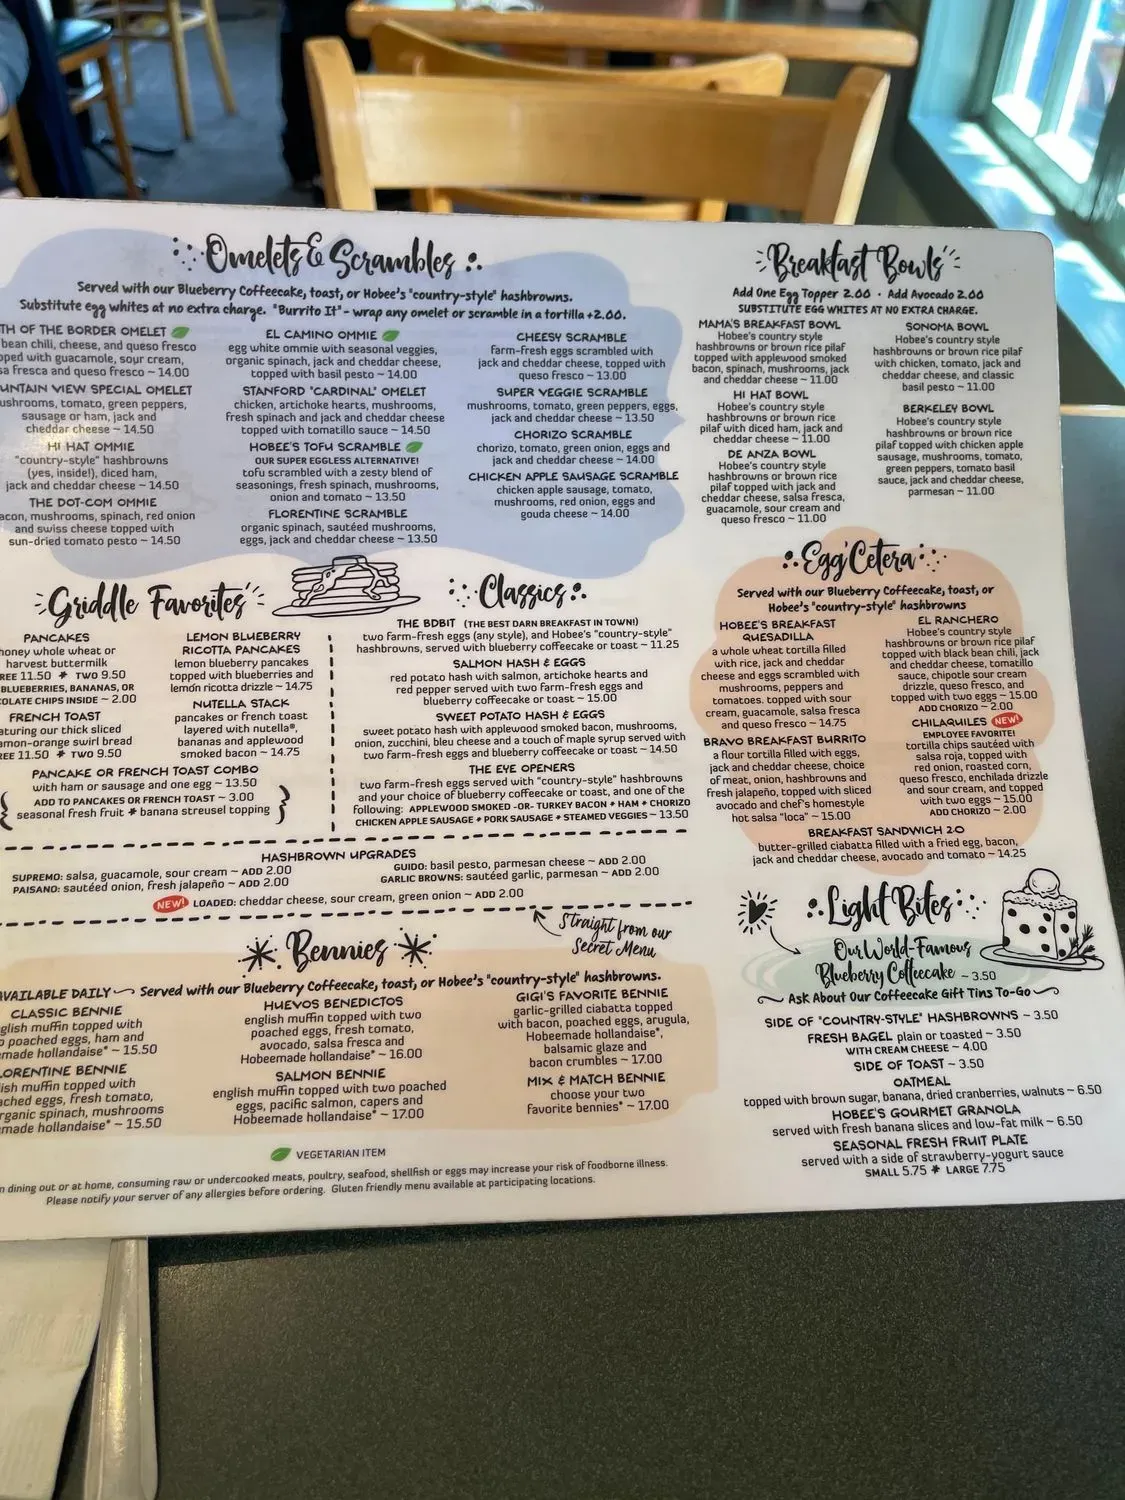 Omelets & Scrambles
Served with our Blueberry Coffeecake, toast, or Hobee's "country-style" hashbrowns.
Substitute egg whites at no extra charge. "Burrito It" - wrap any omelet or scramble in a tortilla +2.00.
OF THE BORDER OMELET
bean chili, cheese, and queso fresco
with guacamole, sour cream,
fresca and queso fresco ~ 14.00
VIEW SPECIAL OMELET
tomato, green peppers,
sausage or ham, jack and
cheddar cheese ~ 14.50
HI HAT OMMIE
"country-style" hashbrowns
(yes, inside!), diced ham,
jack and cheddar cheese ~ 14.50
THE DOT-COM OMMIE
mushrooms, spinach, red onion
and swiss cheese topped with
sun-dried tomato pesto ~ 14.50
EL CAMINO OMMIE
egg white ommie with seasonal veggies,
organic spinach, jack and cheddar cheese,
topped with basil pesto ~ 14.00
STANFORD "CARDINAL" OMELET
chicken, artichoke hearts, mushrooms,
fresh spinach and jack and cheddar cheese
topped with tomatillo sauce ~ 14.50
HOBEE'S TOFU SCRAMBLE
OUR SUPER EGGLESS ALTERNATIVE!
tofu scrambled with a zesty blend of
seasonings, fresh spinach, mushrooms,
onion and tomato ~ 13.50
FLORENTINE SCRAMBLE
organic spinach, sautéed mushrooms,
eggs, jack and cheddar cheese ~ 13.50
CHEESY SCRAMBLE
farm-fresh eggs scrambled with
jack and cheddar cheese, topped with
queso fresco ~ 13.00
SUPER VEGGIE SCRAMBLE
mushrooms, tomato, green peppers, eggs,
jack and cheddar cheese ~ 13.50
CHORIZO SCRAMBLE
chorizo, tomato, green onion, eggs and
jack and cheddar cheese ~ 14.00
CHICKEN APPLE SAUSAGE SCRAMBLE
chicken apple sausage, tomato,
mushrooms, red onion, eggs and
gouda cheese ~ 14.00
Breakfast Bowls
Add One Egg Topper 2.00 • Add Avocado 2.00
SUBSTITUTE EGG WHITES AT NO EXTRA CHARGE.
MAMA'S BREAKFAST BOWL
Hobee's country style
hashbrowns or brown rice pilaf
topped with applewood smoked
bacon, spinach, mushrooms, jack
and cheddar cheese ~ 11.00
HI HAT BOWL
Hobee's country style
hashbrowns or brown rice
pilaf with diced ham, jack and
cheddar cheese ~ 11.00
DE ANZA BOWL
Hobee's country style
hashbrowns or brown rice
pilaf topped with jack and
cheddar cheese, salsa fresca,
guacamole, sour cream and
queso fresco ~ 11.00
SONOMA BOWL
Hobee's country style
hashbrowns or brown rice pilaf
with chicken, tomato, jack and
cheddar cheese, and classic
basil pesto ~ 11.00
BERKELEY BOWL
Hobee's country style
hashbrowns or brown rice
pilaf topped with chicken apple
sausage, mushrooms, tomato,
green peppers, tomato basil
sauce, jack and cheddar cheese,
parmesan ~ 11.00
Griddle Favorites
PANCAKES
honey whole wheat or
harvest buttermilk
11.50 * TWO 9.50
BLUEBERRIES, BANANAS, OR
CHIPS INSIDE ~ 2.00
FRENCH TOAST
our thick sliced
swirl bread
11.50 * TWO 9.50
LEMON BLUEBERRY
RICOTTA PANCAKES
lemon blueberry pancakes
topped with blueberries and
lemon ricotta drizzle ~ 14.75
NUTELLA STACK
pancakes or french toast
layered with nutella®,
bananas and applewood
smoked bacon ~ 14.75
PANCAKE OR FRENCH TOAST COMBO
with ham or sausage and one egg ~ 13.50
ADD TO PANCAKES OR FRENCH TOAST ~ 3.00
seasonal fresh fruit * banana streusel topping
Classics
THE BDBIT (THE BEST DARN BREAKFAST IN TOWN!)
two farm-fresh eggs (any style), and Hobee's "country-style"
hashbrowns, served with blueberry coffeecake or toast ~ 11.25
SALMON HASH & EGGS
red potato hash with salmon, artichoke hearts and
red pepper served with two farm-fresh eggs and
blueberry coffeecake or toast ~ 15.00
SWEET POTATO HASH & EGGS
sweet potato hash with applewood smoked bacon, mushrooms,
onion, zucchini, bleu cheese and a touch of maple syrup served with
two farm-fresh eggs and blueberry coffeecake or toast ~ 14.50
THE EYE OPENERS
two farm-fresh eggs served with "country-style" hashbrowns
and your choice of blueberry coffeecake or toast, and one of the
following: APPLEWOOD SMOKED -OR- TURKEY BACON + HAM + CHORIZO
CHICKEN APPLE SAUSAGE + PORK SAUSAGE + STEAMED VEGGIES ~ 13.50
Egg'Cetera
Served with our Blueberry Coffeecake, toast, or
Hobee's "country-style" hashbrowns
HOBEE'S BREAKFAST
QUESADILLA
a whole wheat tortilla filled
with rice, jack and cheddar
cheese and eggs scrambled with
mushrooms, peppers and
tomatoes. topped with sour
cream, guacamole, salsa fresca
and queso fresco ~ 14.75
BRAVO BREAKFAST BURRITO
a flour tortilla filled with eggs,
jack and cheddar cheese, choice
of meat, onion, hashbrowns and
fresh jalapeño, topped with sliced
avocado and chef's homestyle
hot salsa "loca" ~ 15.00
EL RANCHERO
Hobee's country style
hashbrowns or brown rice pilaf
topped with black bean chili, jack
and cheddar cheese, tomatillo
sauce, chipotle sour cream
drizzle, queso fresco, and
topped with two eggs ~ 15.00
ADD CHORIZO ~ 2.00
CHILAQUILES NEW!
EMPLOYEE FAVORITE!
tortilla chips sautéed with
salsa roja, topped with
red onion, roasted corn,
queso fresco, enchilada drizzle
and sour cream, and topped
with two eggs ~ 15.00
ADD CHORIZO ~ 2.00
BREAKFAST SANDWICH 2.0
butter-grilled ciabatta filled with a fried egg, bacon,
jack and cheddar cheese, avocado and tomato ~ 14.25
HASHBROWN UPGRADES
SUPREMO: salsa, guacamole, sour cream ~ ADD 2.00
PAISANO: sautéed onion, fresh jalapeño ~ ADD 2.00
GUIDO: basil pesto, parmesan cheese ~ ADD 2.00
GARLIC BROWNS: sautéed garlic, parmesan ~ ADD 2.00
NEW! LOADED: cheddar cheese, sour cream, green onion ~ ADD 2.00
Straight from our
Secret Menu
Bennies
AVAILABLE DAILY Served with our Blueberry Coffeecake, toast, or Hobee's "country-style" hashbrowns.
CLASSIC BENNIE
muffin topped with
poached eggs, ham and
hollandaise* ~ 15.50
BENNIE
muffin topped with
eggs, fresh tomato,
spinach, mushrooms
hollandaise* ~ 15.50
HUEVOS BENEDICTOS
english muffin topped with two
poached eggs, fresh tomato,
avocado, salsa fresca and
Hobeemade hollandaise* ~ 16.00
SALMON BENNIE
english muffin topped with two poached
eggs, pacific salmon, capers and
Hobeemade hollandaise* ~ 17.00
GIGI'S FAVORITE BENNIE
garlic-grilled ciabatta topped
with bacon, poached eggs, arugula,
Hobeemade hollandaise*,
balsamic glaze and
bacon crumbles ~ 17.00
MIX & MATCH BENNIE
choose your two
favorite bennies* ~ 17.00
Light Bites
Our World-Famous
Blueberry Coffeecake ~ 3.50
Ask About Our Coffeecake Gift Tins To-Go
SIDE OF "COUNTRY-STYLE" HASHBROWNS ~ 3.50
FRESH BAGEL plain or toasted ~ 3.50
WITH CREAM CHEESE ~ 4.00
SIDE OF TOAST ~ 3.50
OATMEAL
topped with brown sugar, banana, dried cranberries, walnuts ~ 6.50
HOBEE'S GOURMET GRANOLA
served with fresh banana slices and low-fat milk ~ 6.50
SEASONAL FRESH FRUIT PLATE
served with a side of strawberry-yogurt sauce
SMALL 5.75 * LARGE 7.75
VEGETARIAN ITEM
dining out or at home, consuming raw or undercooked meats, poultry, seafood, shellfish or eggs may increase your risk of foodborne illness.
Please notify your server of any allergies before ordering. Gluten friendly menu available at participating locations.